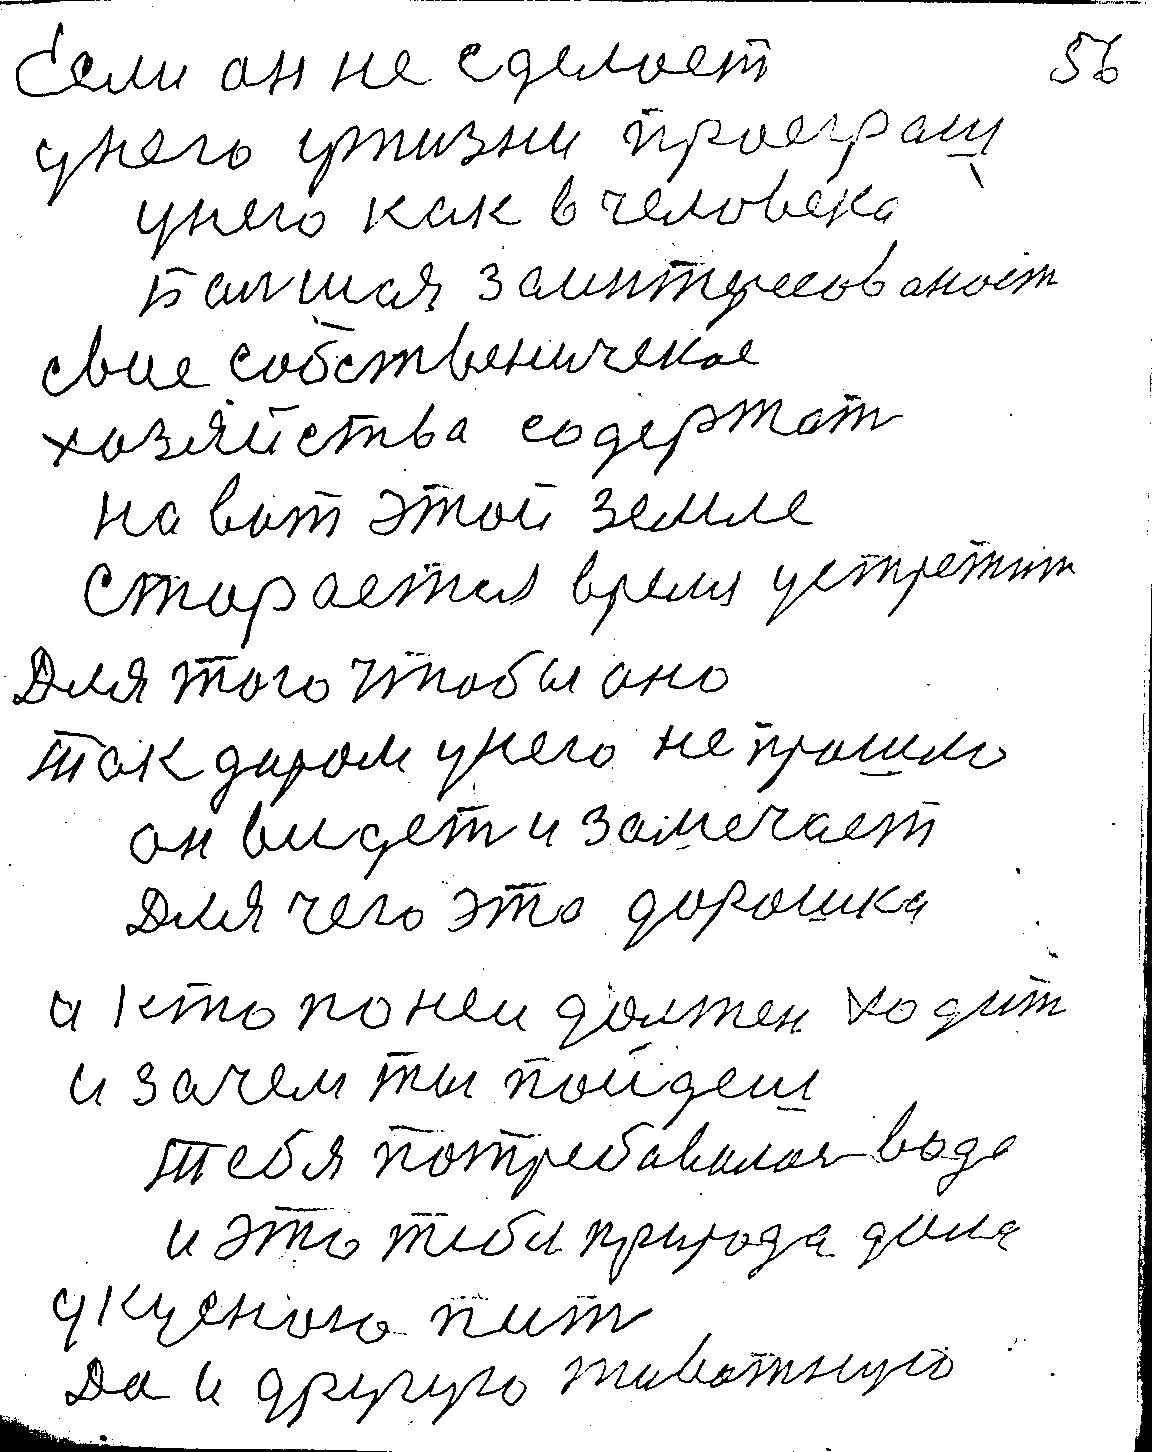 Если он не сделает 56
унего ужизни проеграш
унего как в человека
балшая заинтересованост
свие собственическое
хозяйства содержат
на вот этой земле
старается время устретит
Для того чтобы оно
так даром унего не прошло
он видет и замечает
Для чего эта дорошка
и кто по неи должен ходит
и зачем ты пойдеш
тебя потребавалас вода
и это тебе природа дала
укусною пит
Да и другую животную